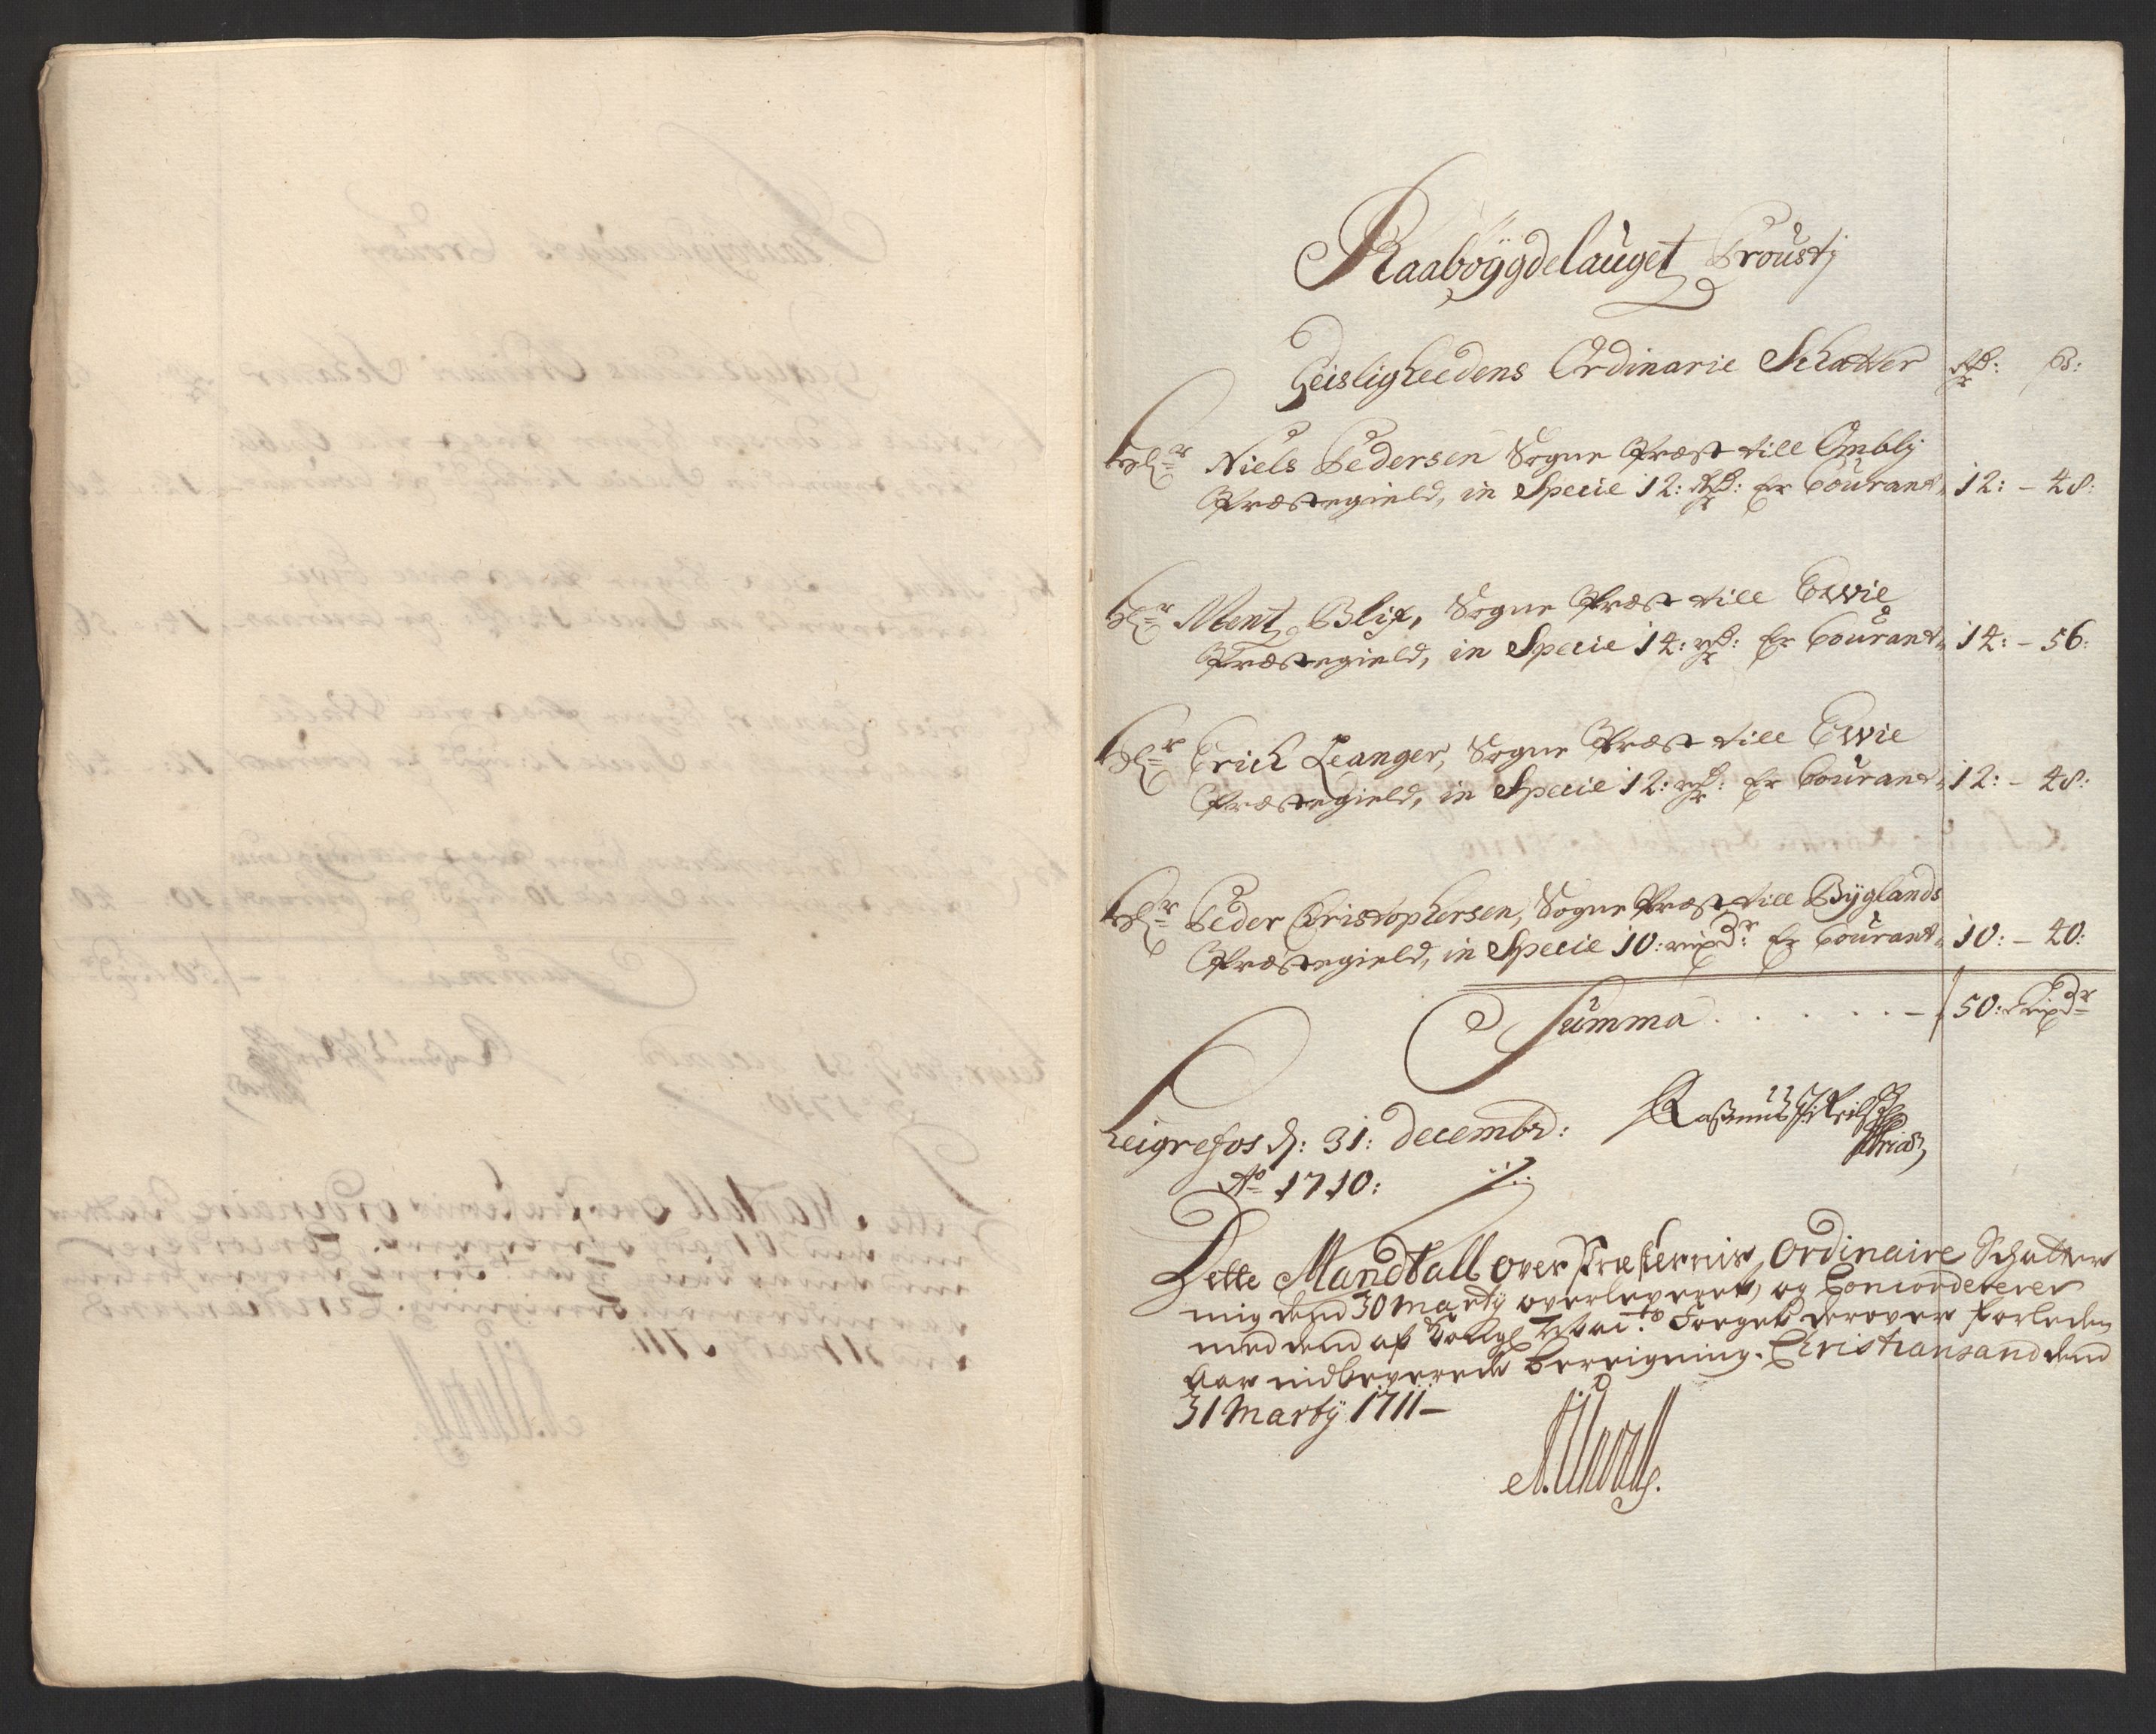 Raaböÿgdelauget Prousti
Geisligheedens Ordinarie Schatter Rdr: ß:
Hr Niels Pedersen Sogne Præst till Omblj
Præstegield, in Specie 12: Rdr: Er Courant 12: – 48:
Hr Ment Blix, Sogne Præst till Ewie
Præstegield, in Specie 14: rdr: Er Courant 14: – 56:
Hr Erich Leanger, Sogne Præst till Ewie
Præstegield, in Specie 12: rdr: Er Courant 12: – 48:
Hr Peder Christophersen, Sogne Præst till Bÿglands
Præstegield, in Specie 10: rixdr: Er Courant 10: – 40:
Summa . . . . . – 50: Rixdr
Leigrefos d: 31: decembr:
Ao 1710:
Dette Mandtall over Præsternis Ordinaire Schatter
mig dend 30 Martÿ overleveret, og Concorderer
med dend af Kongl Mai:ts Foeget derover forleden
Aar indleverede bereigning. Christiansand dend
31 Martÿ 1711 –